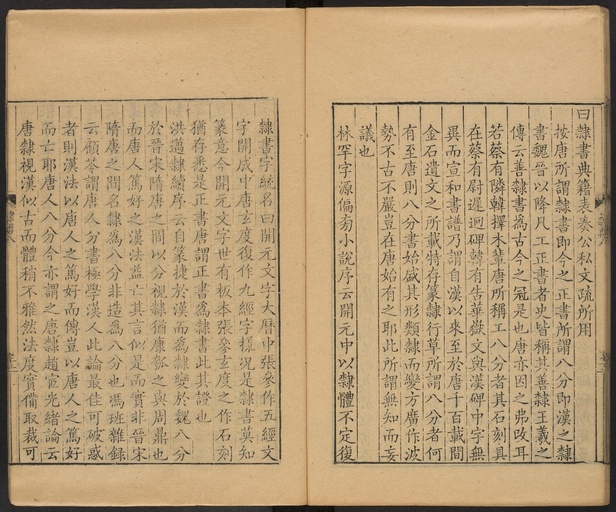 曰隸書典籍表奏公私文疏所用
按唐所謂隸書即今之正書所謂八分即漢之隸
書魏晉以降凡工正書者史皆稱其善隸王羲之
傳云善隸書爲古今之冠是也唐亦因之弗改耳
若蔡有隣韓擇木輩唐所稱工八分者其石刻具
在蔡有尉遲迥碑韓有告華嶽文與漢碑中字無
異而宣和書譜乃謂自漢以來至於唐千百載間
金石遺文之所載特存篆隸行草所謂八分者何
有至唐則八分書始盛其形類隸而變方廣作波
勢不古不嚴豈在唐始有之耶此所謂無知而妄
議也
林罕字源偏旁小說序云開元中以隸體不定復
隸書字統名曰開元文字大曆中張參作五經文
字開成中唐玄度復作九經字樣況是隸書莫知
篆意今開元文字世有板本張參玄度之作石刻
猶存悉是正書唐謂正書爲隸書此其證也
洪邁隸續序云自篆捷於漢而爲隸變於魏八分
於晉宋隋唐之間以分視隸猶康瓠之與周鼎也
而唐人篤好之漢法益亡其言似是而實非晉宋
隋唐之間名隸爲八分非造爲八分也馮班雜録
云顧苓謂唐人分書極學漢人此論最佳可破惑
者則漢法以唐人之篤好而傳豈以唐人之篤好
而亡耶唐人八分今亦謂之唐隸趙宧光緒論云
唐隸視漢似古而體稍不雅然法度實備取裁可